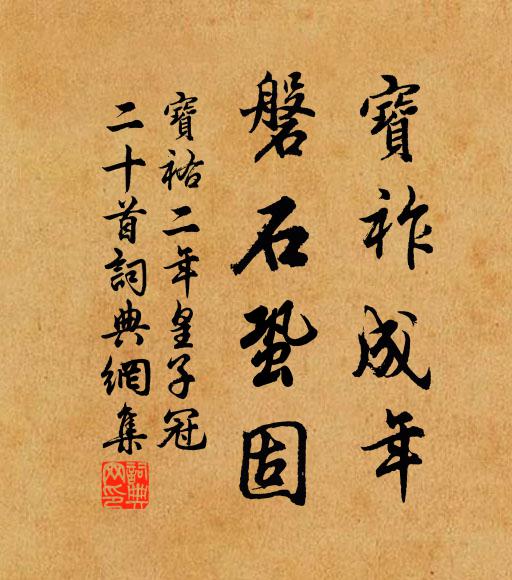 寶祚成年
磐石蛩固
寶祐二年皇子冠
二十首詞典網集
詞典
网印